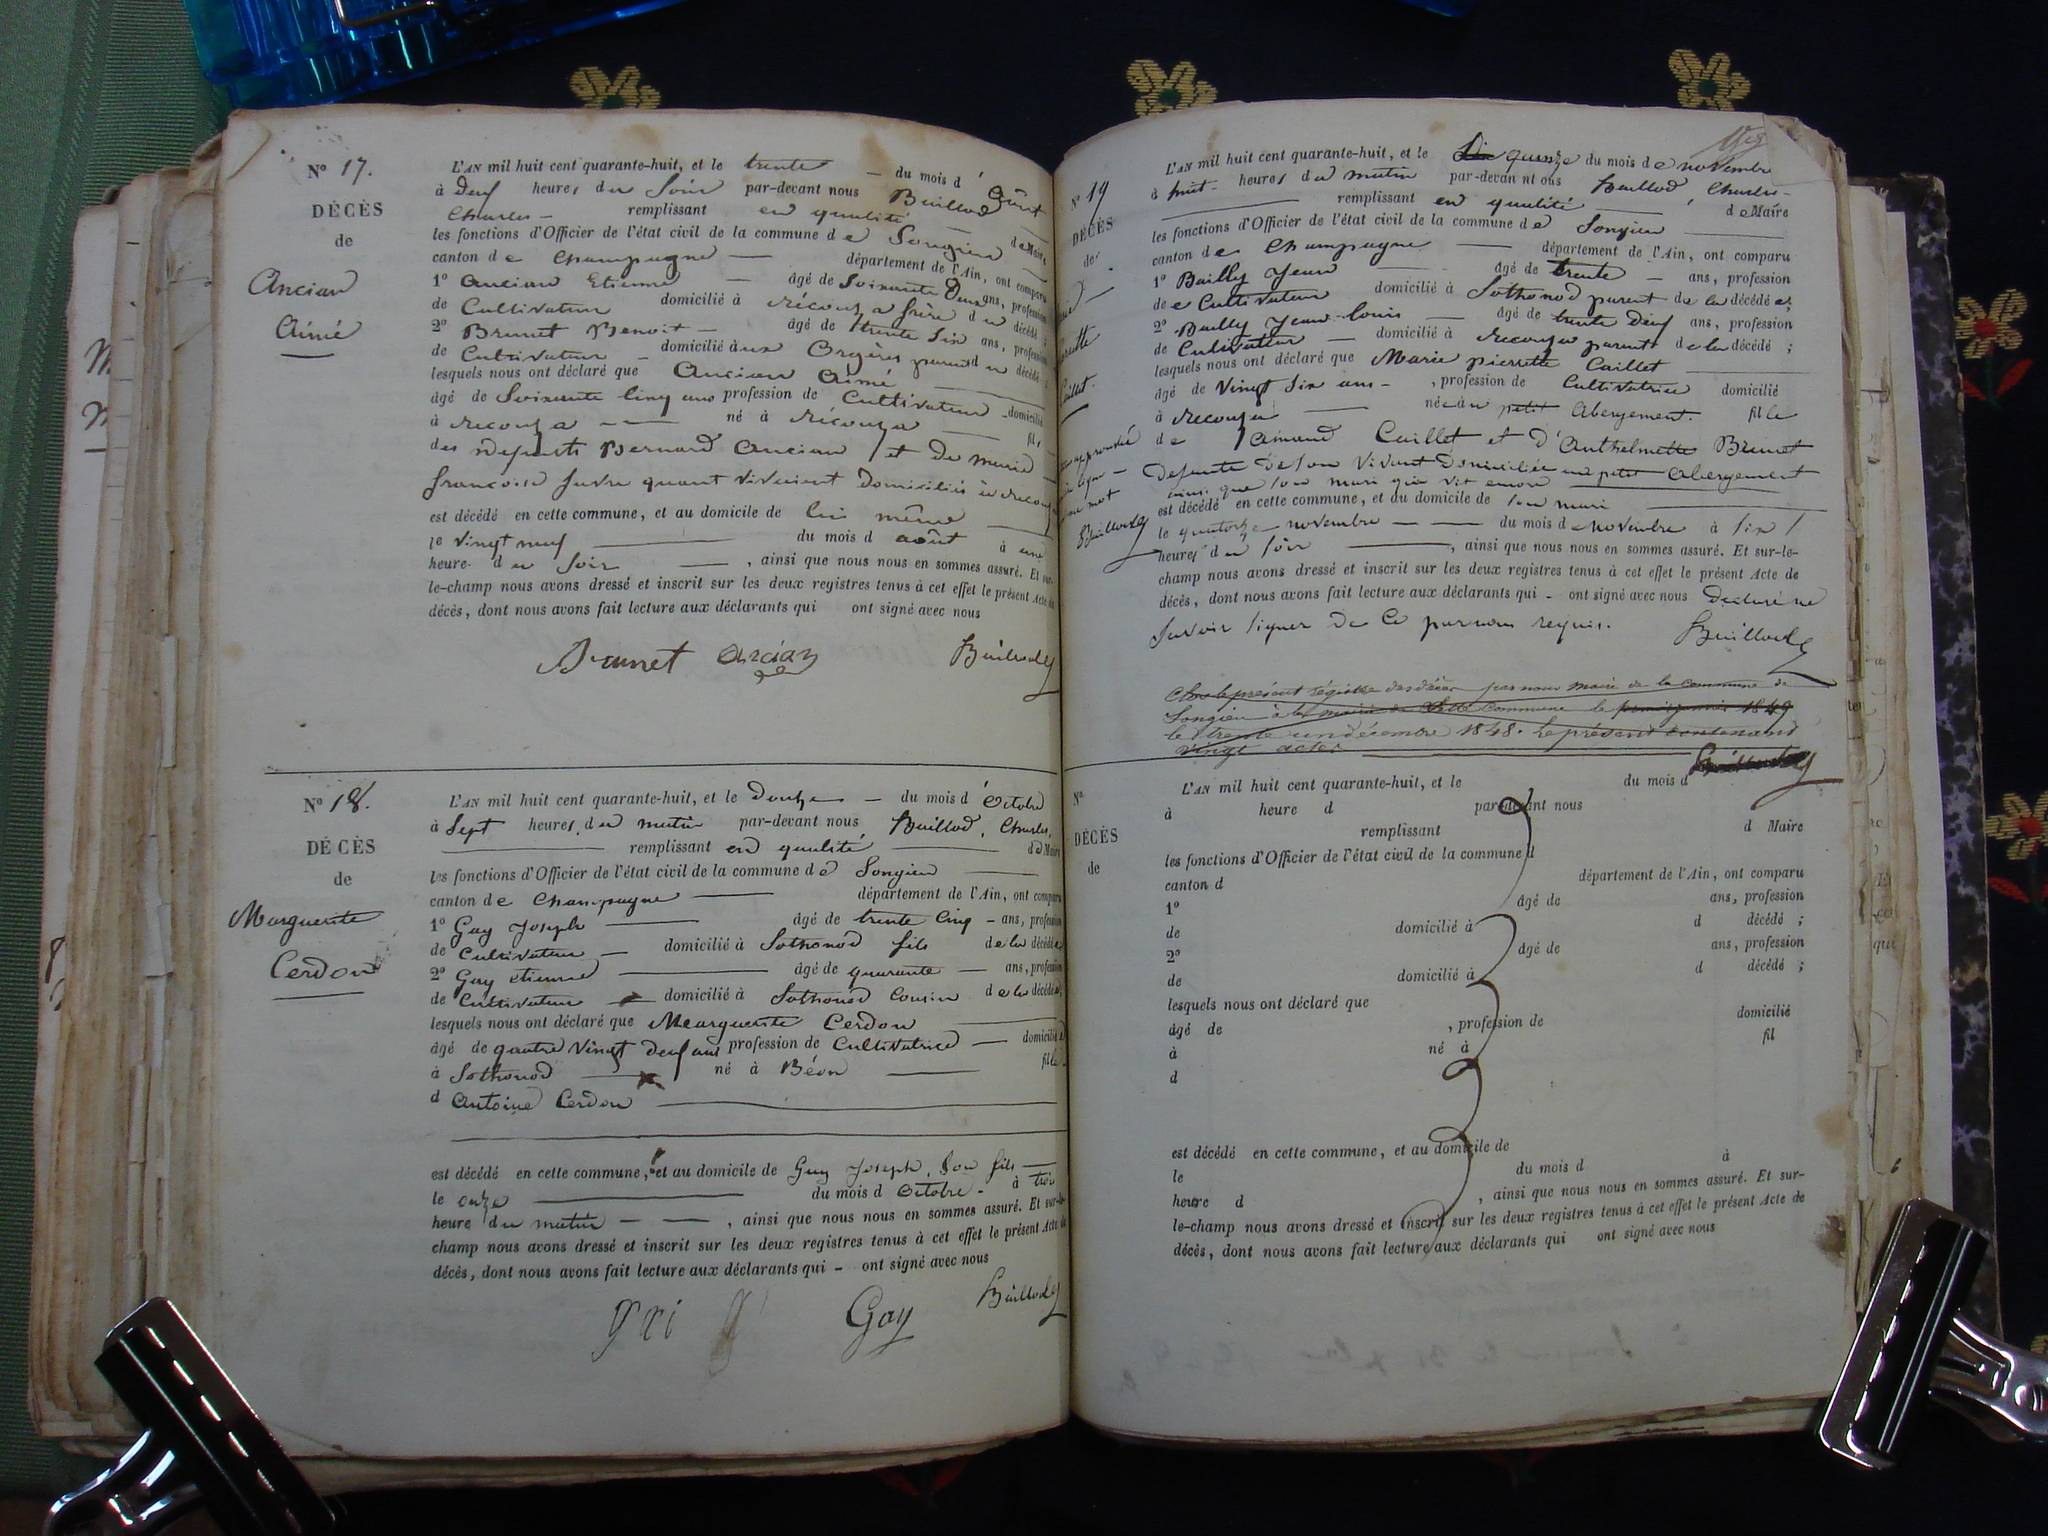 N° 17.
DÉCÈS
de
Ancian
Aimé
L'AN mil huit cent quarante-huit, et le trente — du mois d'Août
à deux heures du Soir par-devant nous Buillod
Charles — remplissant en qualité — de Maire
les fonctions d'Officier de l'état civil de la commune de Songieu
canton de Champagne — département de l'Ain, ont comparu
1° Ancian Etienne — âgé de Soixante Deux ans, profession
de Cultivateur domicilié à récouza frère du décédé ;
2° Brunet Benoit — âgé de trente Six ans, profession
de Cultivateur — domicilié aux Orgères parent du décédé ;
lesquels nous ont déclaré que Ancian Aimé
âgé de Soixante Cinq ans profession de Cultivateur domicilié
à récouza — né à récouza — fils
des Bernard Ancian et de Marie
francoise favre quant vivaient Domiciliés à
est décédé en cette commune, et au domicile de lui même
le vingt neuf — du mois d'août à une
heure du Soir — , ainsi que nous nous en sommes assuré. Et sur-
le-champ nous avons dressé et inscrit sur les deux registres tenus à cet effet le présent Acte de
décès, dont nous avons fait lecture aux déclarants qui ont signé avec nous
Brunet Ancian Buillod
N° 18.
DÉCÈS
de
Marguerite
Cerdon
L'AN mil huit cent quarante-huit, et le Douze — du mois d'Octobre
à Sept heures du matin par-devant nous Buillod, Charles,
— remplissant en qualité — de Maire
les fonctions d'Officier de l'état civil de la commune de Songieu
canton de Champagne — département de l'Ain, ont comparu
1° Gay Joseph — âgé de trente Cinq — ans, profession
de Cultivateur — domicilié à Sothonod fils de la décédée
2° Gay etienne — âgé de quarante — ans, profession
de Cultivateur — domicilié à Sothonod Cousin de la décédée;
lesquels nous ont déclaré que Marguerite Cerdon
âgé de quatre Vingt deux ans profession de Cultivatrice — domiciliée
à Sothonod — né à Béon — fille
d Antoine Cerdon
est décédé en cette commune, et au domicile de Gay Joseph, Son fils
le onze — du mois d Octobre - à trois
heure du matin — — , ainsi que nous nous en sommes assuré. Et sur-le-
champ nous avons dressé et inscrit sur les deux registres tenus à cet effet le présent Acte de
décès, dont nous avons fait lecture aux déclarants qui - ont signé avec nous
Gay Buillod
N° 19
DÉCÈS
de
L'AN mil huit cent quarante-huit, et le Dix quinze du mois de novembre
à huit heures du matin par-devant nous Buillod, Charles
— remplissant en qualité — , de Maire
les fonctions d'Officier de l'état civil de la commune de Songieu
canton de Champagne — département de l'Ain, ont comparu
1° Bailly Jean — âgé de trente — ans, profession
de Cultivateur domicilié à Sothonod parent de la décédée;
2° Bailly Jean-Louis — âgé de trente deux ans, profession
de Cultivateur — domicilié à récouza parent de la décédé ;
lesquels nous ont déclaré que Marie pierrette Caillet
âgé de Vingt Six ans — , profession de Cultivatrice domicilié
à récouza — née au petit Abergement. fille
de Amand Caillet et d'Anthelmette Brunet
Defunte de Son Vivant Domiciliée au petit Abergement
ainsi que Son mari qui vit encore
est décédé en cette commune, et au domicile de Son mari
le quatorze novembre — du mois de novembre à Six
heures du Soir — , ainsi que nous nous en sommes assuré. Et sur-le-
champ nous avons dressé et inscrit sur les deux registres tenus à cet effet le présent Acte de
décès, dont nous avons fait lecture aux déclarants qui - ont signé avec nous Déclaré ne
Savoir Signer de Ce par nous requis.
Buillod
Clos le présent régistre des décès par nous Maire de la commune de
Songieu à la mairie de cette commune le premier janvier 1849
le trente un décembre 1848. le présent contenant
vingt actes
Buillod
N°
DÉCÈS
de
L'AN mil huit cent quarante-huit, et le du mois d
à heure d par-devant nous
remplissant d Maire
les fonctions d'Officier de l'état civil de la commune d
canton d département de l'Ain, ont comparu
1° âgé de ans, profession
de domicilié à d décédé ;
2° âgé de ans, profession
de domicilié à d décédé ;
lesquels nous ont déclaré que
âgé de , profession de domicilié
à né à fil
d
est décédé en cette commune, et au domicile de
le du mois d à
heure d , ainsi que nous nous en sommes assuré. Et sur-
le-champ nous avons dressé et inscrit sur les deux registres tenus à cet effet le présent Acte de
décès, dont nous avons fait lecture aux déclarants qui ont signé avec nous